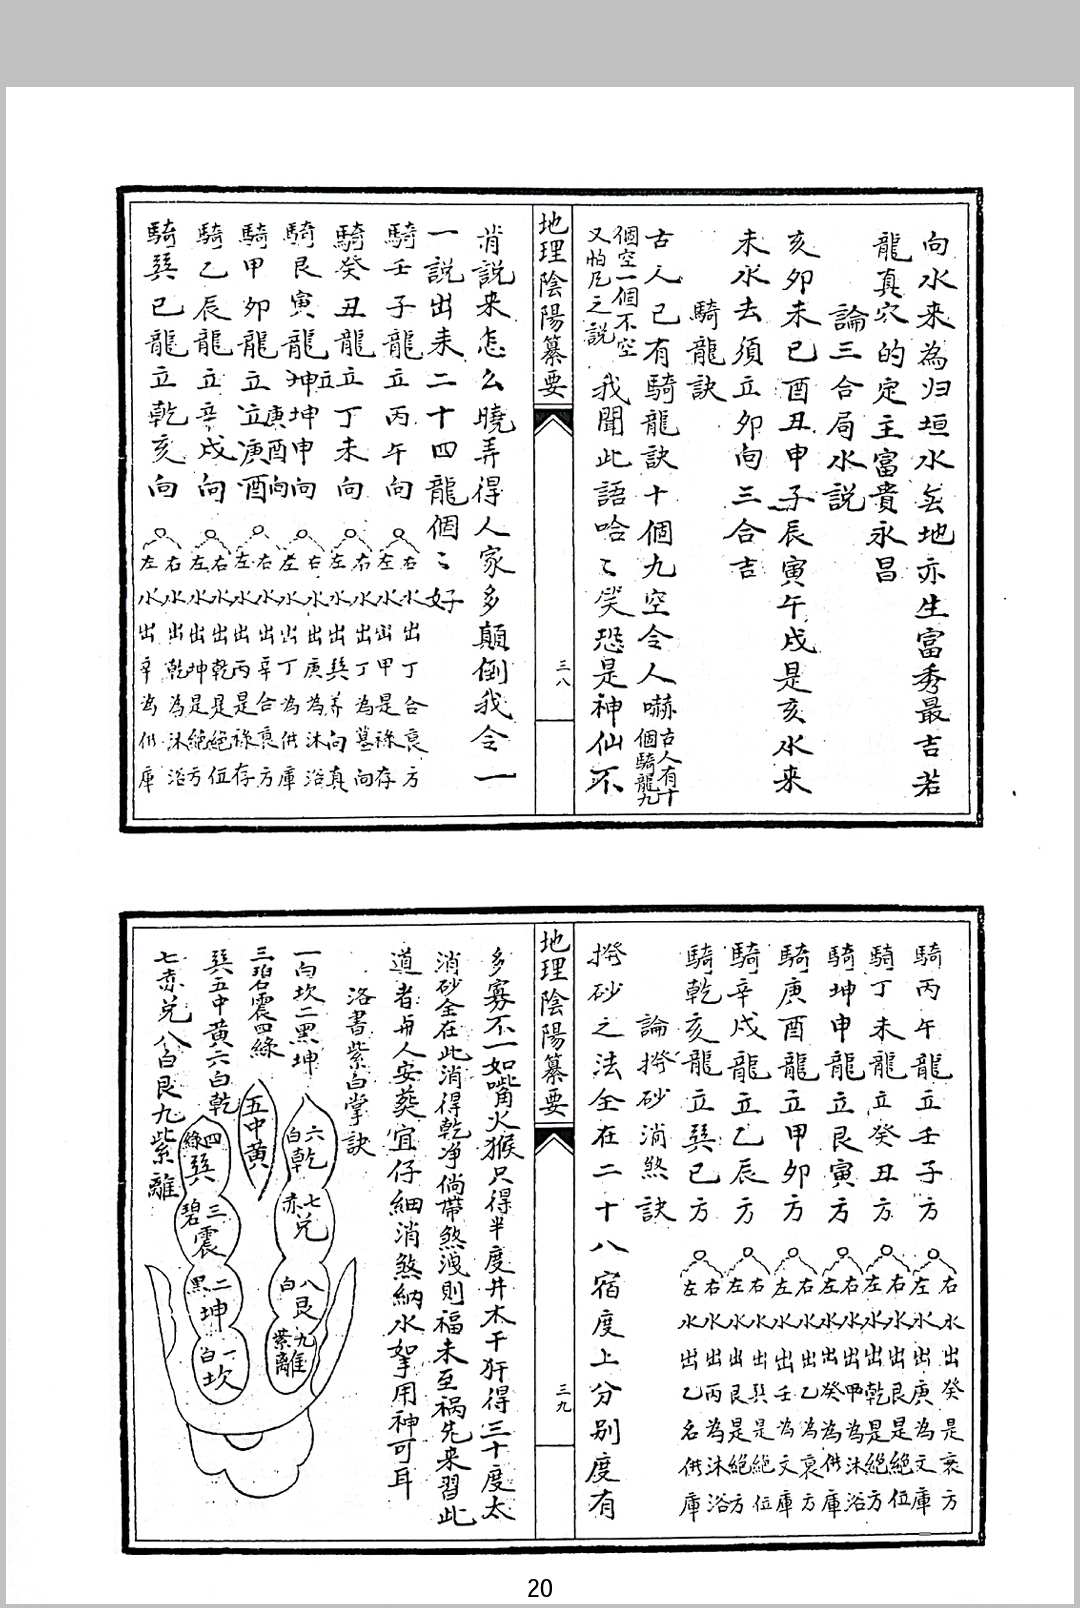 向水来為归垣水去地亦生富秀最吉若
龍真穴的定主富貴永昌
論三合局水説
亥卯未巳酉丑申子辰寅午戌是亥水来
未水去須立卯向三合吉
騎龍訣
古人已有騎龍訣十個九空令人嚇古人有十個騎龍九
個空一個不空又怕凡之説我聞此語哈〻笑恐是神仙不
地理陰陽纂要
三八
肯説来怎么曉弄得人家多顛倒我令一
一説出来二十四龍個〻好
騎壬子龍立丙午向
右水出丁合衰方
左水出甲是祿存
騎癸丑龍立丁未向
右水出丁為墓向
左水出巽养向真
騎艮寅龍立坤坤申向
右水出庚為沐浴
左水出丁為供庫
騎甲卯龍立庚酉向
右水出辛合衰方
左水出丙是祿存
騎乙辰龍立辛戌向
右水出乾是絕位
左水出坤是絕方
騎巽巳龍立乾亥向
右水出乾為沐浴
左水出辛為供庫
騎丙午龍立壬子方
右水出癸是衰方
左水出庚為文庫
騎丁未龍立癸丑方
右水出艮是絕位
左水出乾是絕方
騎坤申龍立艮寅方
右水出甲為沐浴
左水出癸為供庫
騎庚酉龍立甲卯方
右水出乙為衰方
左水出壬為文庫
騎辛戌龍立乙辰方
右水出巽是絕位
左水出艮是絕方
騎乾亥龍立巽巳方
右水出丙為沐浴
左水出乙名供庫
論撥砂消煞訣
撥砂之法全在二十八宿度上分别度有
地理陰陽纂要
三九
多寡不一如嘴火猴只得半度井木干犴得三十度太
消砂全在此消得乾净倘帶煞洩則福未至祸先来習此
道者与人安葬宜仔細消煞納水挐用神可耳
洛書紫白掌訣
一白坎二黑坤
三碧震四綠
巽五中黄六白乾
七赤兑八白艮九紫離
五中黄
六白乾
七赤兑
八白艮
九紫離
四綠巽
三碧震
二黑坤
一白坎
20